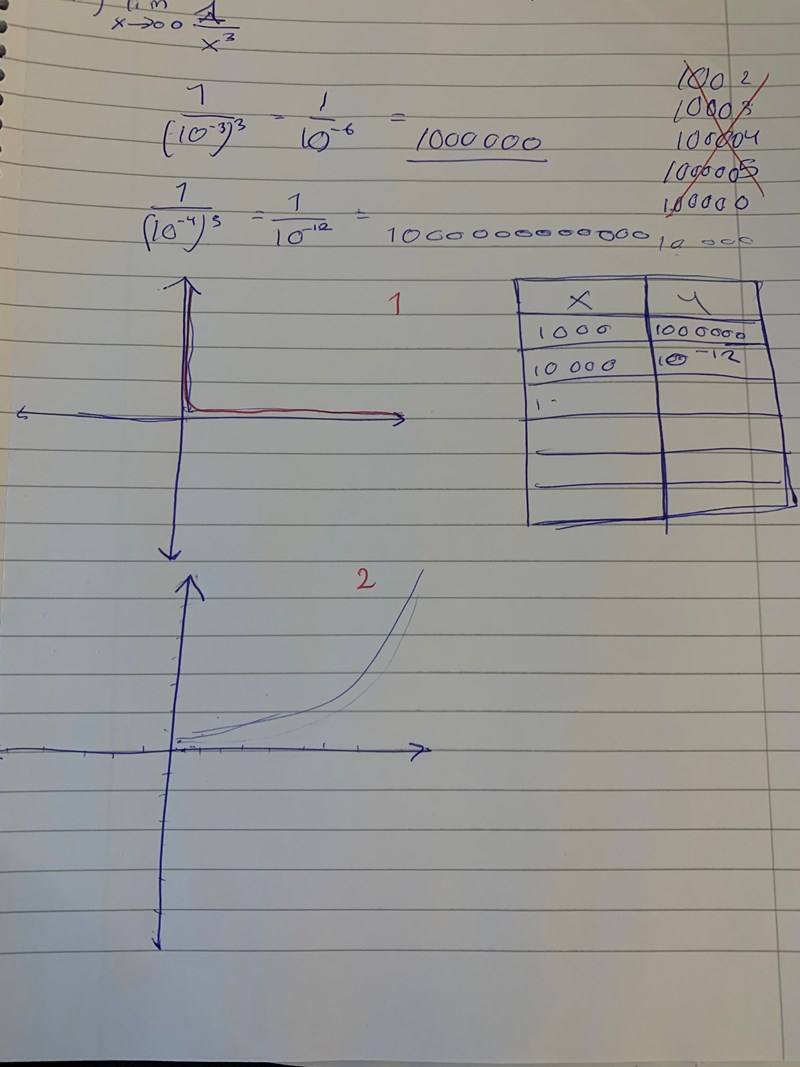 ) lim
x→∞ 1/x³
1/(10⁻³)³ = 1/10⁻⁶ = 1000000
1/(10⁻⁴)³ = 1/10⁻¹² = 1000000000000,10 000
100 2
1000 3
10000 4
100000 5
100000
1
x y
1000 1000000
10 000 10⁻¹²
1
2